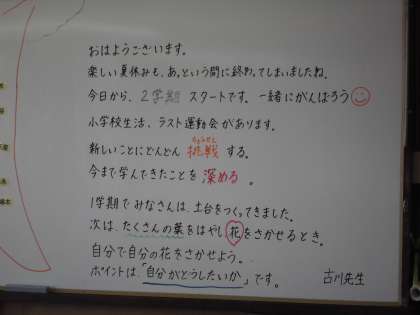 おはようございます。
楽しい夏休みも、あっという間に終わってしまいましたね。
今日から、2学期 スタートです。一緒にがんばろう
小学校生活、ラスト運動会があります。
ちょうせん
新しいことにどんどん 挑戦 する。
今まで学んできたことを 深める 。
1学期でみなさんは、土台をつくってきました。
次は、たくさんの葉をはやし花をさかせるとき。
自分で自分の花をさかせよう。
ポイントは、「自分がどうしたいか」です。
古川先生